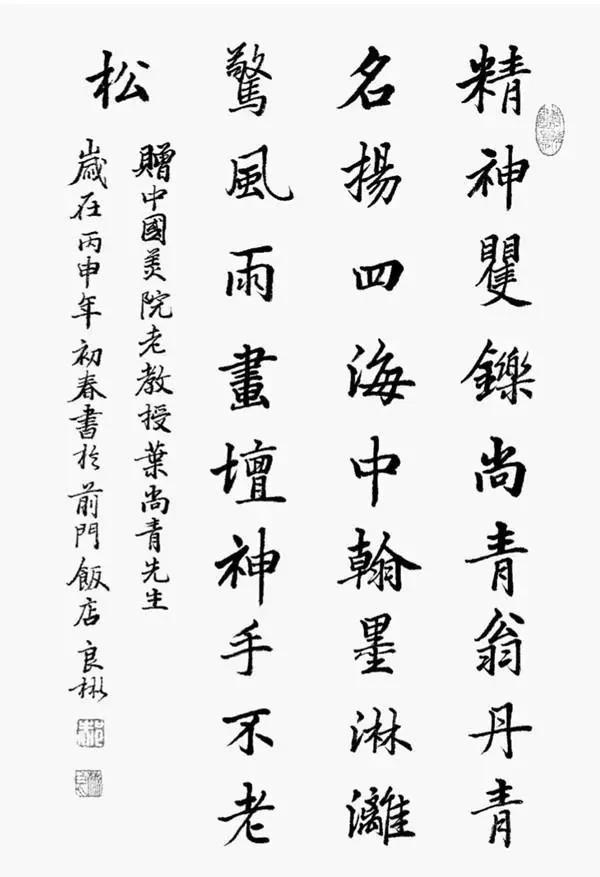 精神矍鑠尚青翁丹青
名揚四海中翰墨淋灕
驚風雨畫壇神手不老
松
贈中國美院老教授葉尚青先生
歲在丙申年初春書於前門飯店良彬